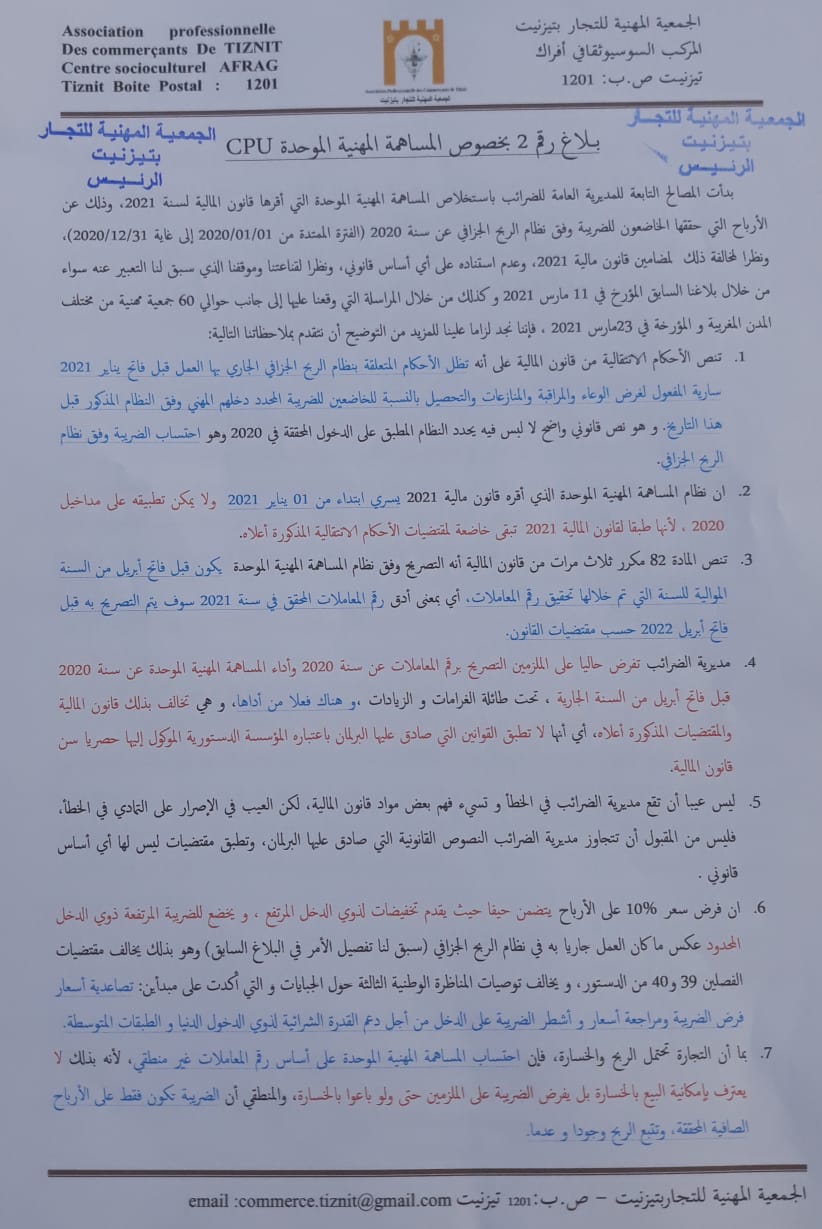 Association professionnelle
Des commerçants De TIZNIT
Centre socioculturel AFRAG
Tiznit Boite Postal : 1201
Association Professionnelle des Commerçants de Tiznit
الجمعية المهنية للتجار بتيزنيت
الجمعية المهنية للتجار بتيزنيت
المركب السوسيوثقافي أفراك
تيزنيت ص.ب: 1201
الجمعية المهنية للتجار
بتيزنيت
الرئيس
الجمعية المهنية للتجار
بتيزنيت
الرئيس
بلاغ رقم 2 بخصوص المساهمة المهنية الموحدة CPU
بدأت المصالح التابعة للمديرية العامة للضرائب باستخلاص المساهمة المهنية الموحدة التي أقرها قانون المالية لسنة 2021، وذلك عن
الأرباح التي حققها الخاضعون للضريبة وفق نظام الربح الجزافي عن سنة 2020 (الفترة الممتدة من 2020/01/01 إلى غاية 2020/12/31)،
ونظرا لمخالفة ذلك لمضامين قانون مالية 2021، وعدم استناده على أي أساس قانوني، ونظرا لقناعتنا وموقفنا الذي سبق لنا التعبير عنه سواء
من خلال بلاغنا السابق المؤرخ في 11 مارس 2021 و كذلك من خلال المراسلة التي وقعنا عليها إلى جانب حوالي 60 جمعية مهنية من مختلف
المدن المغربية و المؤرخة في 23مارس 2021 ، فإننا نجد لزاما علينا للمزيد من التوضيح أن نتقدم بملاحظاتنا التالية:
1. تنص الأحكام الانتقالية من قانون المالية على أنه تظل الأحكام المتعلقة بنظام الربح الجزافي الجاري بها العمل قبل فاتح يناير 2021
سارية المفعول لغرض الوعاء والمراقبة والمنازعات والتحصيل بالنسبة للخاضعين للضريبة المحدد دخلهم المهني وفق النظام المذكور قبل
هذا التاريخ. و هو نص قانوني واضح لا لبس فيه يحدد النظام المطبق على الدخول المحققة في 2020 وهو احتساب الضريبة وفق نظام
الربح الجزافي.
2. ان نظام المساهمة المهنية الموحدة الذي أقره قانون مالية 2021 يسري ابتداء من 01 يناير 2021 ولا يمكن تطبيقه على مداخيل
2020 ، لأنها طبقا لقانون المالية 2021 تبقى خاضعة لمقتضيات الأحكام الانتقالية المذكورة أعلاه.
3. تنص المادة 82 مكرر ثلاث مرات من قانون المالية أنه التصريح وفق نظام المساهمة المهنية الموحدة يكون قبل فاتح أبريل من السنة
الموالية للسنة التي تم خلالها تحقيق رقم المعاملات، أي بمعنى أدق رقم المعاملات المحقق في سنة 2021 سوف يتم التصريح به قبل
فاتح أبريل 2022 حسب مقتضيات القانون.
4. مديرية الضرائب تفرض حاليا على الملزمين التصريح برقم المعاملات عن سنة 2020 وأداء المساهمة المهنية الموحدة عن سنة 2020
قبل فاتح أبريل من السنة الجارية ، تحت طائلة الغرامات و الزيادات ،و هناك فعلا من أداها، و هي تخالف بذلك قانون المالية
والمقتضيات المذكورة أعلاه، أي أنها لا تطبق القوانين التي صادق عليها البرلمان باعتباره المؤسسة الدستورية الموكول إليها حصريا سن
قانون المالية.
5. ليس عيبا أن تقع مديرية الضرائب في الخطأ و تسيء فهم بعض مواد قانون المالية، لكن العيب في الإصرار على التمادي في الخطأ،
فليس من المقبول أن تتجاوز مديرية الضرائب النصوص القانونية التي صادق عليها البرلمان، وتطبق مقتضيات ليس لها أي أساس
قانوني .
6. ان فرض سعر 10% على الأرباح يتضمن حيفا حيث يقدم تخفيضات لذوي الدخل المرتفع ، و يخضع للضريبة المرتفعة ذوي الدخل
المحدود عكس ماكان العمل جاريا به في نظام الربح الجزافي (سبق لنا تفصيل الأمر في البلاغ السابق) وهو بذلك يخالف مقتضيات
الفصلين 39 و40 من الدستور، و يخالف توصيات المناظرة الوطنية الثالثة حول الجبايات و التي أكدت على مبدأين: تصاعدية أسعار
فرض الضريبة ومراجعة أسعار و أشطر الضريبة على الدخل من أجل دعم القدرة الشرائية لذوي الدخول الدنيا و الطبقات المتوسطة.
7. بما أن التجارة تحتمل الربح والخسارة، فإن احتساب المساهمة المهنية الموحدة على أساس رقم المعاملات غير منطقي، لأنه بذلك لا
يعترف بإمكانية البيع بالخسارة بل يفرض الضريبة على الملزمين حتى ولو باعوا بالخسارة، والمنطقي أن الضريبة تكون فقط على الأرباح
الصافية المحققة، وتتبع الربح وجودا و عدما.
الجمعية المهنية للتجاربتيزنيت – ص.ب:1201 تيزنيت email :commerce.tiznit@gmail.com